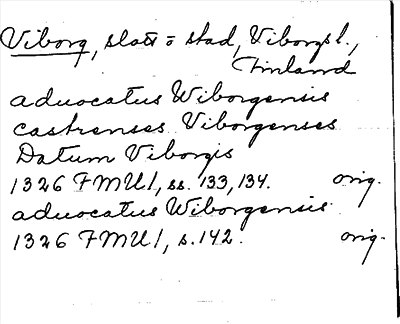 Viborg, slott o stad, Viborgs l.,
Finland
advocatus Wiborgensis
castrenses Viborgenses
Datum Viborgis
1326 FMU I, ss. 133, 134. orig.
advocatus Wiborgensis
1326 FMU I, s. 142. orig.